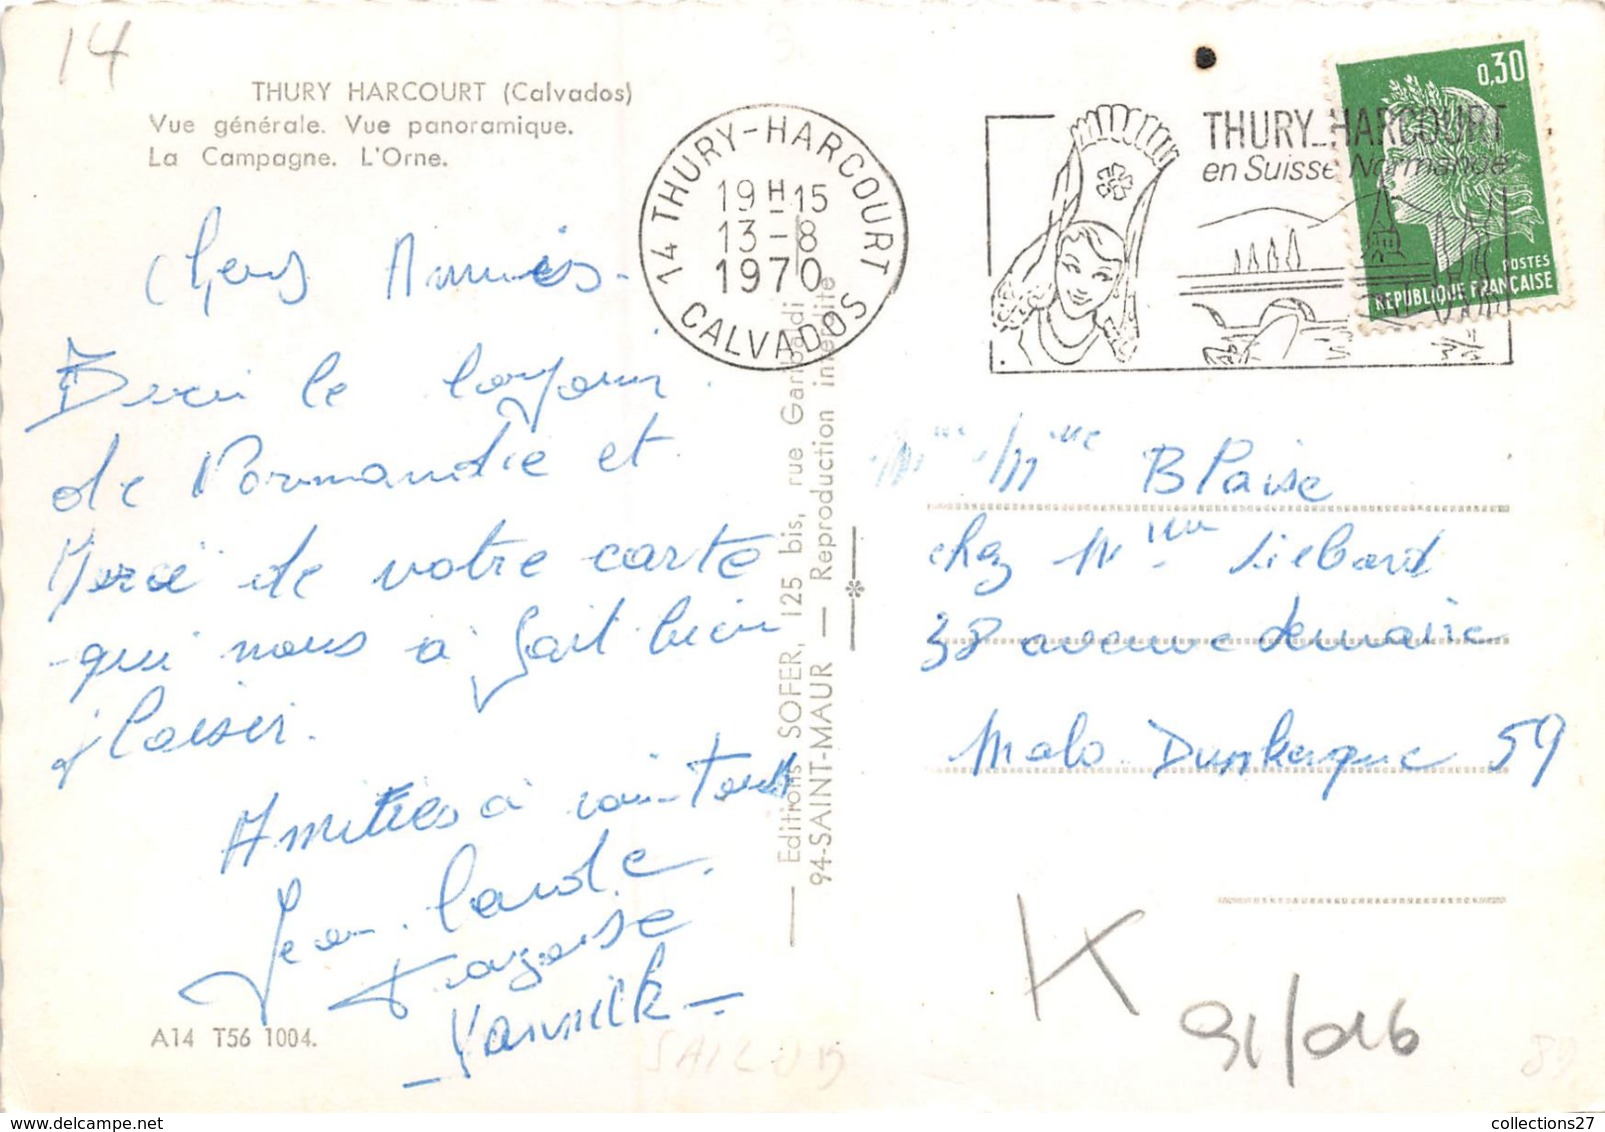 14
THURY HARCOURT (Calvados)
Vue générale. Vue panoramique.
La Campagne. L'Orne.
14 THURY-HARCOURT
19 H 15
13-8
1970
CALVADOS
THURY-HARCOURT
en Suisse Normande
0,30
POSTES
REPUBLIQUE FRANÇAISE
Chers Amies.
le bonjour
de Normandie et
Merci de votre carte
qui nous a fait bien
plaisir.
Amitiés à vous tous
Jean. Claude.
Françoise
Yannick
A14 T56 1004.
Editions SOFER, 125 bis, rue Garibaldi
94-SAINT-MAUR — Reproduction interdite
Mme Blaise
chez Mme Liebard
38 avenue demaire
Malo Dunkerque 59
K
91/016
89
collections27